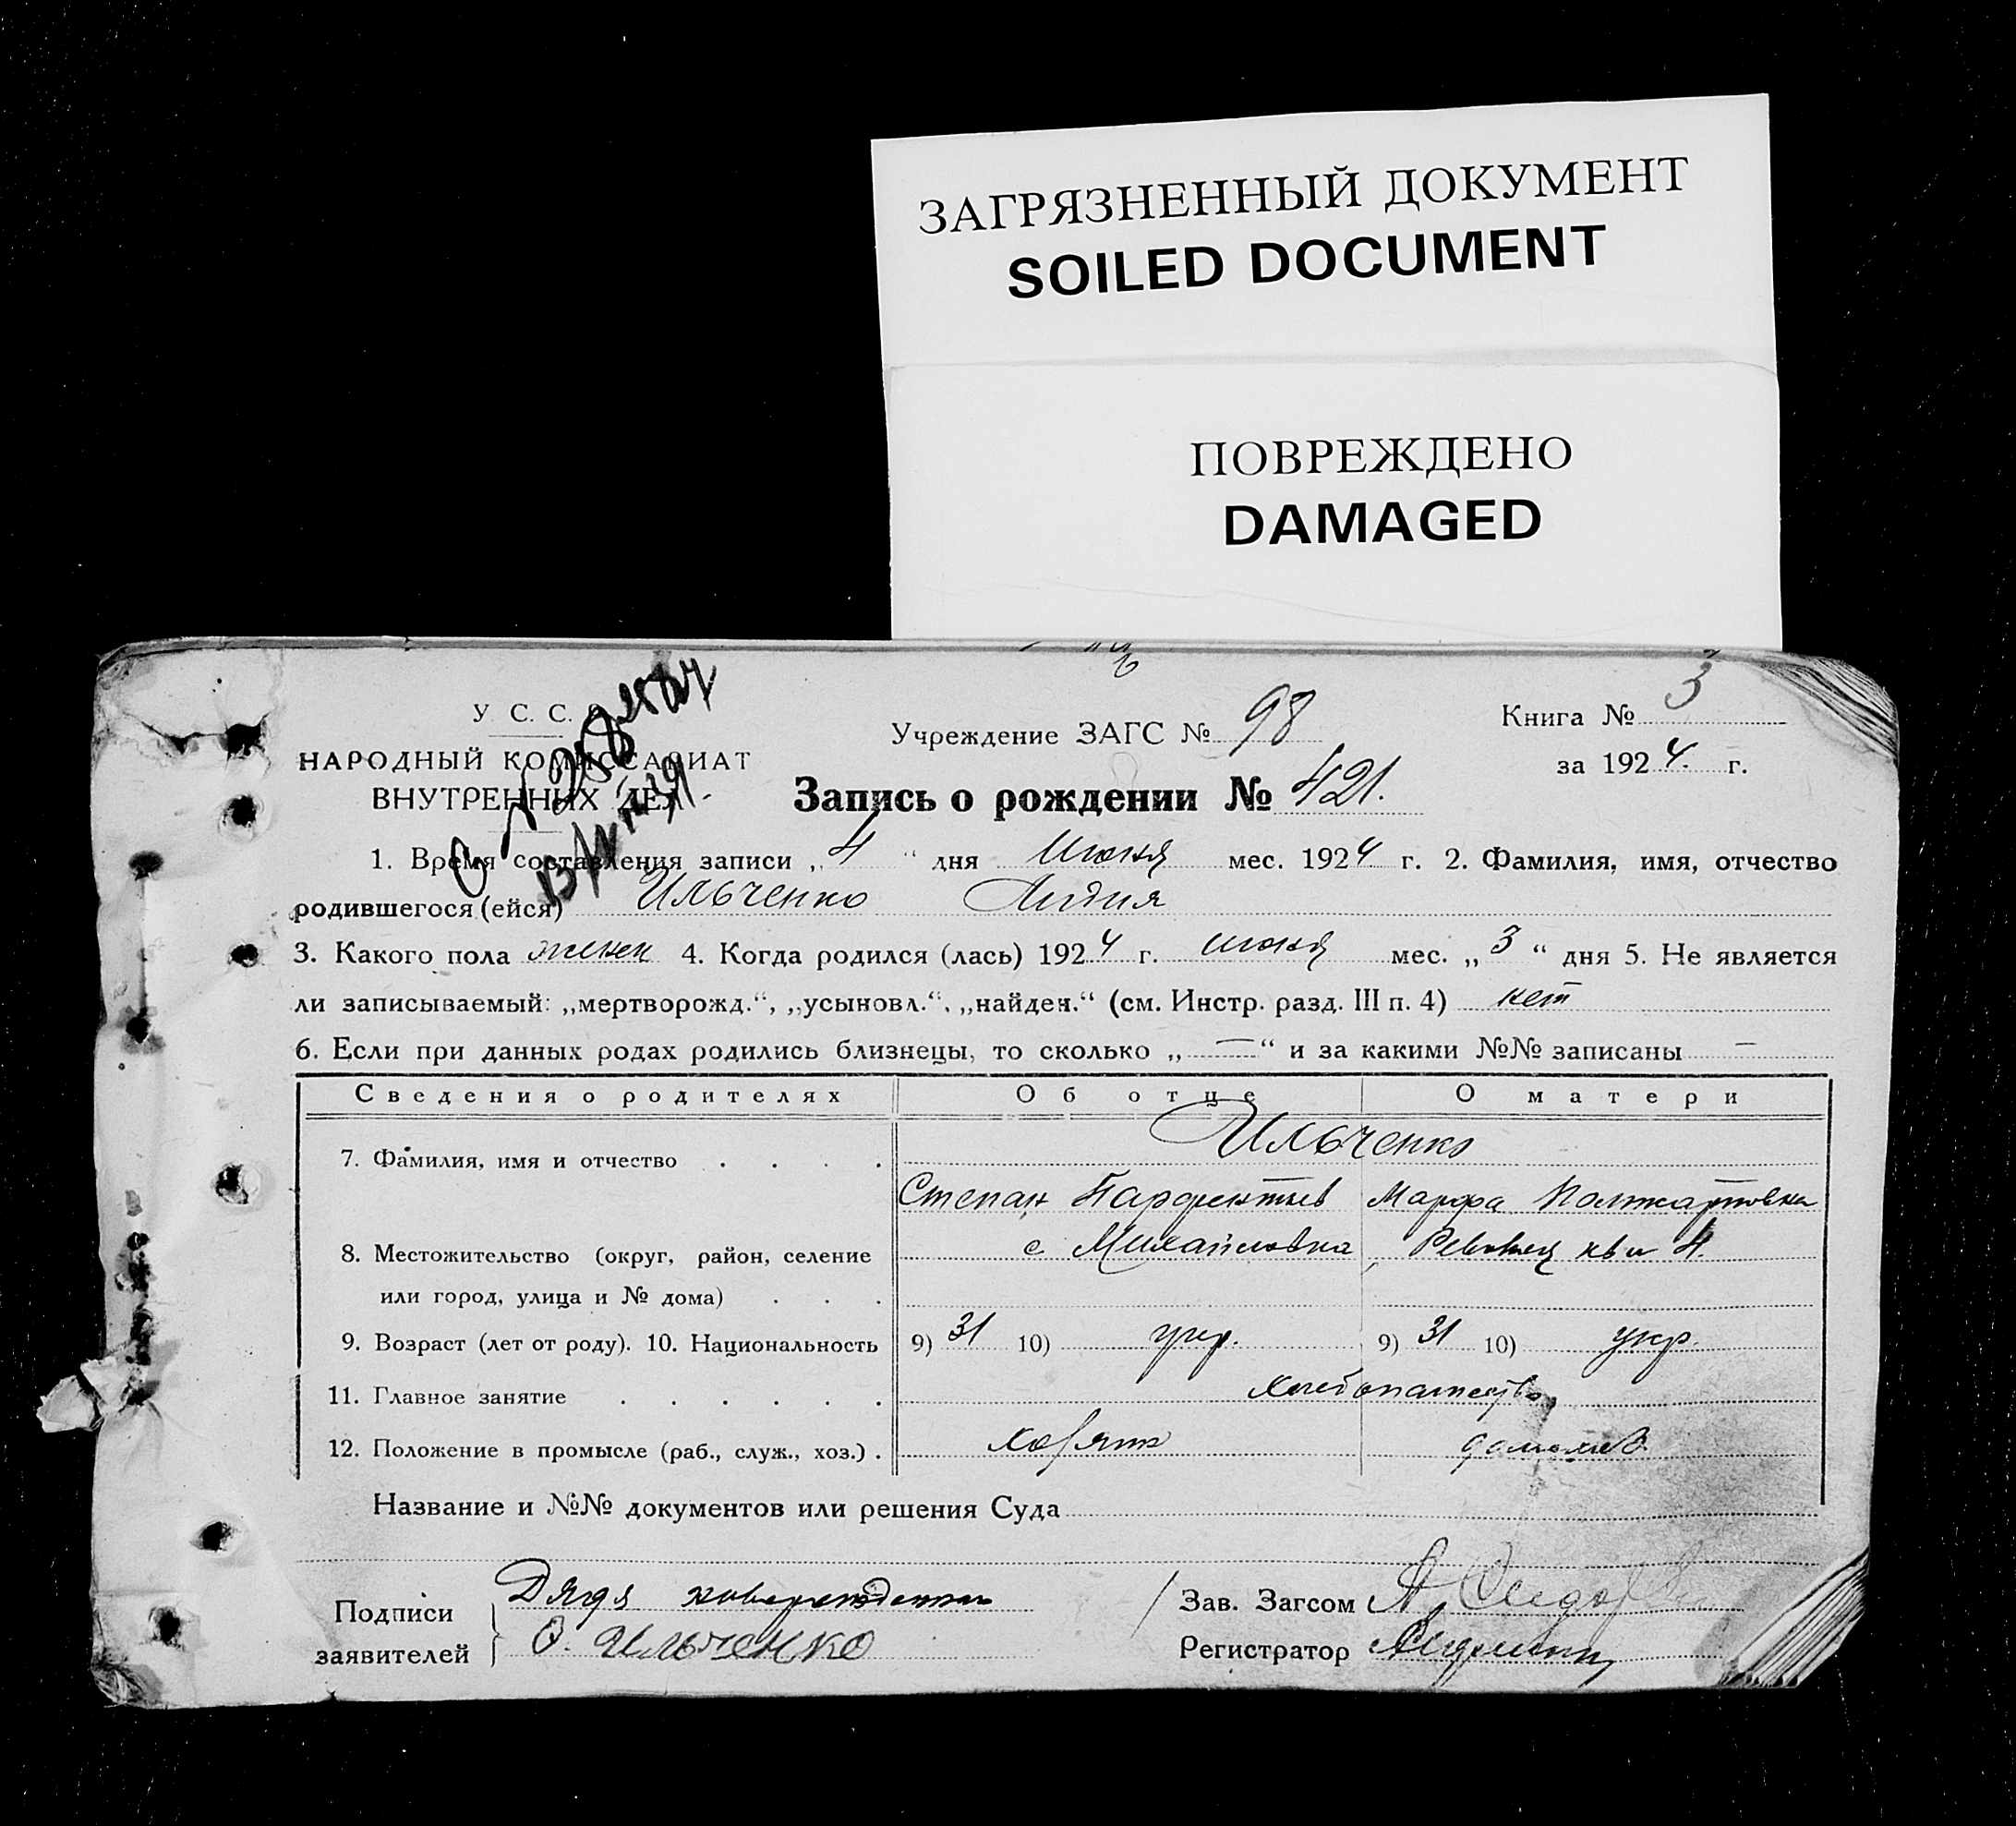 ЗАГРЯЗНЕННЫЙ ДОКУМЕНТ
SOILED DOCUMENT
ПОВРЕЖДЕНО
DAMAGED
У С. С.
НАРОДНЫЙ КОМИССАРИАТ
ВНУТРЕННИХ ДЕЛ
Учреждение ЗАГС № 98
Книга № 3
за 1924 г.
Запись о рождении № 421.
1. Время составления записи „4“ дня Июня мес. 1924 г. 2. Фамилия, имя, отчество
родившегося (ейся) Ильченко Лидия
3. Какого пола женск 4. Когда родился (лась) 1924 г. июня мес. „3“ дня 5. Не является
ли записываемый: „мертворожд.“, „усыновл.“, „найден.“ (см. Инстр. разд. III п. 4) нет
6. Если при данных родах родились близнецы, то сколько „—“ и за какими №№ записаны —
Сведения о родителях Об отце О матери
7. Фамилия, имя и отчество . . . . Ильченко
Степан Парфентьев Марфа
8. Местожительство (округ, район, селение с Михайловка
или город, улица и № дома) . . .
9. Возраст (лет от роду). 10. Национальность 9) 31 10) укр. 9) 31 10) укр.
11. Главное занятие . . . . . . хлебопашество
12. Положение в промысле (раб., служ., хоз.) . хозяин домохоз.
Название и №№ документов или решения Суда
Подписи Дядя новорожденной
заявителей О. Ильченко
Зав. Загсом А.
Регистратор